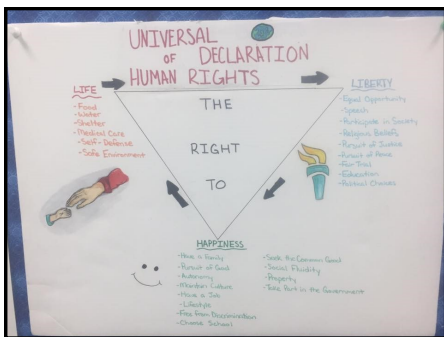 UNIVERSAL
OF DECLARATION
HUMAN RIGHTS
LIFE
- Food
- Water
- Shelter
- Medical Care
- Self-Defense
- Safe Environment
THE
RIGHT
TO
LIBERTY
- Equal Opportunity
- Speech
- Participate in Society
- Religious Beliefs
- Pursuit of Justice
- Pursuit of Peace
- Fair Trial
- Education
- Political Choices
HAPPINESS
- Have a Family
- Pursuit of Good
- Autonomy
- Maintain Culture
- Have a Job
- Lifestyle
- Free from Discrimination
- Choose School
- Seek the Common Good
- Social Fluidity
- Property
- Take Part in the Government